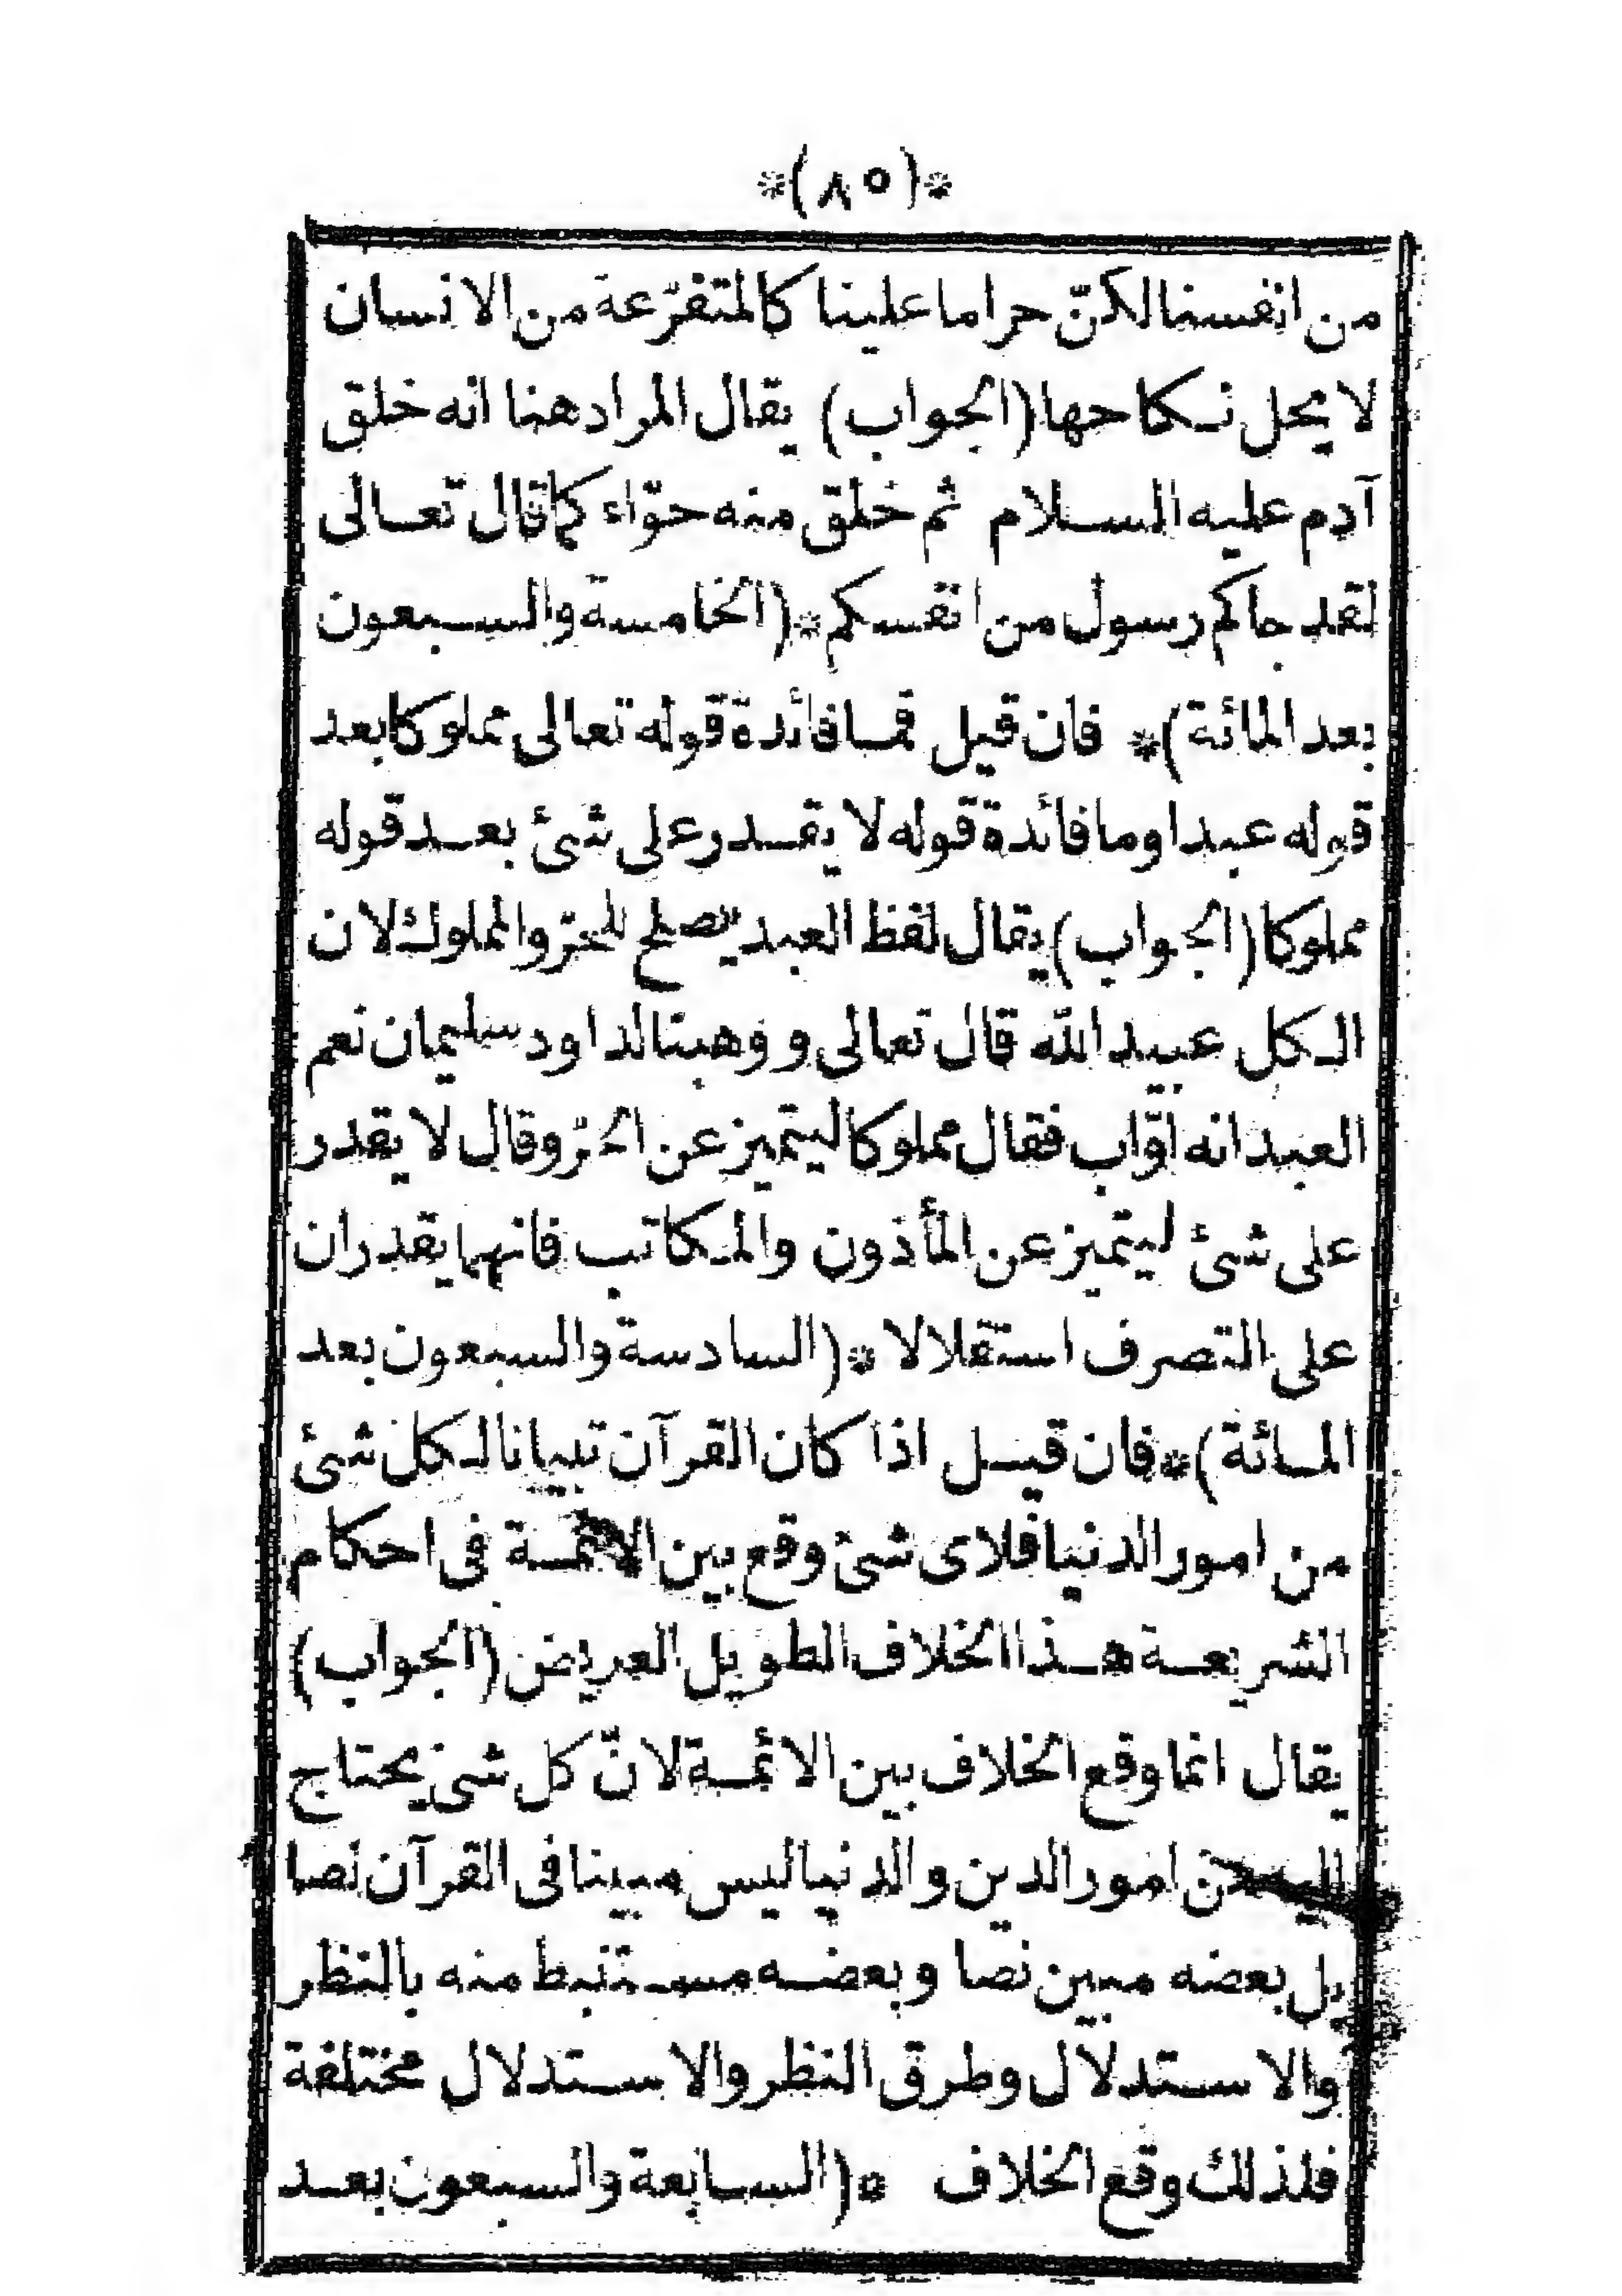 *(٨٥)*
من انفسنا لكنّ حراما علينا كالمتفرّعة من الانسان
لا يحل نكاحها (الجواب) يقال المراد هنا انه خلق
آدم عليه السلام ثم خلق منه حوّاء كما قال تعالى
لقد جاكم رسول من انفسكم *(الخامسة والسبعون
بعد المائة)* فان قيل فما فائدة قوله تعالى مملوكا بعد
قوله عبدا وما فائدة قوله لا يقدر على شئ بعد قوله
مملوكا (الجواب) يقال لفظ العبد يصلح للحرّ والمملوك لان
الكل عبيد الله قال تعالى ووهبنا لداود سليمان نعم
العبد انه اوّاب فقال مملوكا ليتميز عن الحرّ وقال لا يقدر
على شئ ليتميز عن المأذون والمكاتب فانهما يقدران
على التصرف استقلالا *(السادسة والسبعون بعد
المائة)* فان قيل اذا كان القرآن تبيانا لكل شئ
من امور الدنيا فلاى شئ وقع بين الائمة فى احكام
الشريعة هذا الخلاف الطويل العريض (الجواب)
يقال انما وقع الخلاف بين الائمة لانّ كل شئ يحتاج
اليه من امور الدين والدنيا ليس مبينا فى القرآن نصا
بل بعضه مبين نصا وبعضه مستنبط منه بالنظر
والاستدلال وطرق النظر والاستدلال مختلفة
فلذلك وقع الخلاف *(السابعة والسبعون بعد